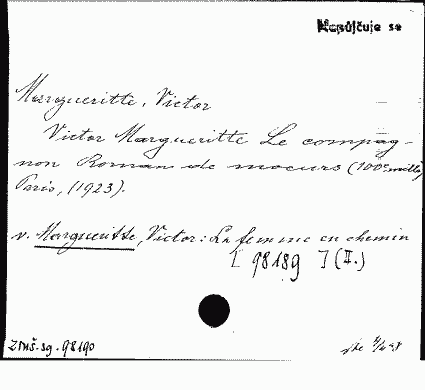 Nepůjčuje se
Margueritte, Victor
Victor Margueritte Le compag-
non Roman de moeurs (100e mille)
Paris, (1923).
v. Margueritte, Victor: La femme en chemin
[ 98189 ] (II.)
ZMŠ.sg.98190